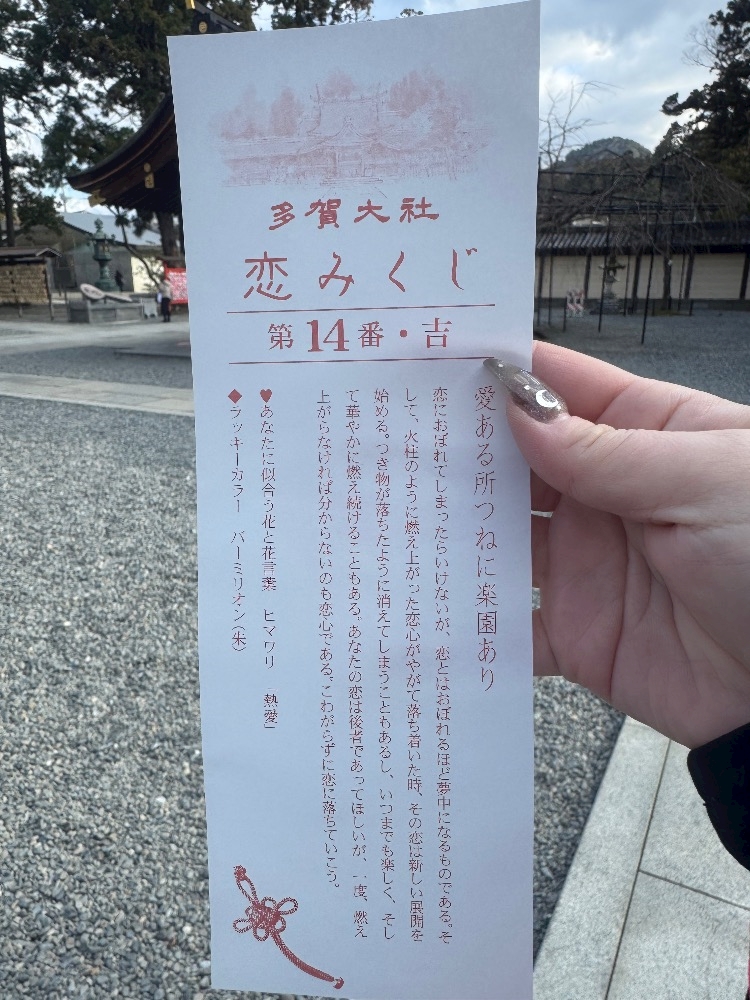 多賀大社
恋みくじ
第14番・吉
愛ある所つねに楽園あり
恋におぼれてしまったらいけないが、恋とはおぼれるほど夢中になるものである。そ
して、火柱のように燃え上がった恋心がやがて落ち着いた時、その恋は新しい展開を
始める。つき物が落ちたように消えてしまうこともあるし、いつまでも楽しく、そし
て華やかに燃え続けることもある。あなたの恋は後者であってほしいが、一度、燃え
上がらなければ分からないのも恋心である。こわがらずに恋に落ちていこう。
♥あなたに似合う花と花言葉　ヒマワリ　「熱愛」
◆ラッキーカラー　バーミリオン(朱)